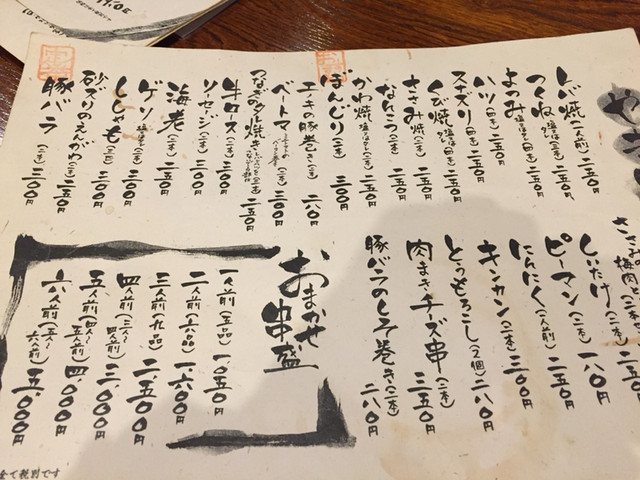 レバ焼(一人前)二五〇円
つくね 塩またはタレ(二本)二五〇円
よつみ 塩またはタレ(二本)二五〇円
ハツ(二本)二五〇円
スナズリ(二本)二五〇円
くび焼 塩またはタレ(二本)二五〇円
ささみ焼(二本)二五〇円
なんこつ(二本)二五〇円
かわ焼 塩またはタレ(二本)二五〇円
ぼんじり(二本)三〇〇円
エノキの豚巻き(二本)二八〇円
ベートマ(二本)三〇〇円
つなぎのタレ焼き(二本)二五〇円
牛ロース(二本)三〇〇円
ソーセージ(二本)三〇〇円
海老(二本)三五〇円
ゲソ 塩またはタレ(二本)三〇〇円
ししゃも(二本)三〇〇円
砂ズリのえんがわ(二本)二五〇円
豚バラ(二本)三〇〇円
ささみ梅肉と(二本)
しいたけ(二本)二八〇円
ピーマン(二本)二五〇円
にんにく(一人前)二五〇円
キンカン(二本)三〇〇円
とうもろこし(2個)二八〇円
肉まきチーズ串(二本)三五〇円
豚バラのしそ巻き(二本)二八〇円
おまかせ
串盛
一人前(五品)一、〇五〇円
二人前(六品)一、六〇〇円
三人前(九品)二、五〇〇円
四人前(三人〜四人前)三、〇〇〇円
五人前(四人〜五人前)四、〇〇〇円
六人前(五人〜六人前)五、〇〇〇円
全て税別です